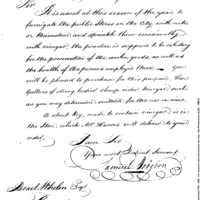 Sir
It is usual at this season of the year to
fumigate the public Stores in the City with nitre
or Brimstone and sprinkle them occasionally
with vinegar, the practice is supposed to be salutary
for the preservation of the woolen goods, as well as
the health of the persons employed there - you will
be pleased to purchase for this purpose, Ten
Gallons of strong bodied sharp cider Vinegar, such
as you may determine suitable for the service.
A stout Keg, made to contain vinegar, is in
the Store, which Mr Harris will deliver to your
order.
I am Sir
Your most Obedient Servant
Israel Whelen Esqr